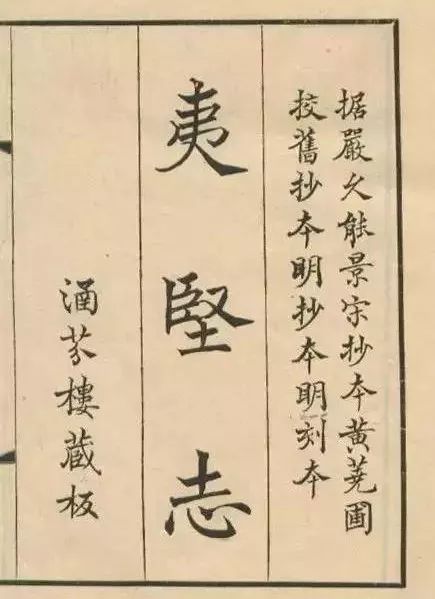 据嚴久能景宋抄本黄蕘圃
挍舊抄本明抄本明刻本
夷堅志
涵芬樓蔵板